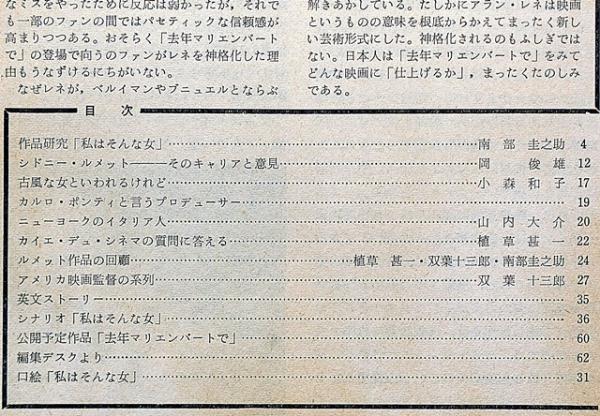 なミスをやったために反応は弱かったが，それで
も一部のファンの間ではパセティックな信頼感が
高まりつつある。おそらく「去年マリエンバート
で」の登場で向うのファンがレネを神格化した理
由もうなずけるにちがいない。
なぜレネが，ベルイマンやブニュエルとならぶ
解きあかしている。たしかにアラン・レネは映画
というものの意味を根底からかえてまったく新し
い芸術形式にした。神格化されるのもふしぎでは
ない。日本人は「去年マリエンバートで」をみて
どんな映画に「仕上げるか」，まったくたのしみ
である。
目次
作品研究「私はそんな女」 南部圭之助 4
シドニー・ルメット――そのキャリアと意見 岡俊雄 12
古風な女といわれるけれど 小森和子 17
カルロ・ポンティと言うプロデューサー 19
ニューヨークのイタリア人 山内大介 20
カイエ・デュ・シネマの質問に答える 植草甚一 22
ルメット作品の回顧 植草甚一・双葉十三郎・南部圭之助 24
アメリカ映画監督の系列 双葉十三郎 27
英文ストーリー 35
シナリオ「私はそんな女」 36
公開予定作品「去年マリエンバートで」 60
編集デスクより 62
口絵「私はそんな女」 31